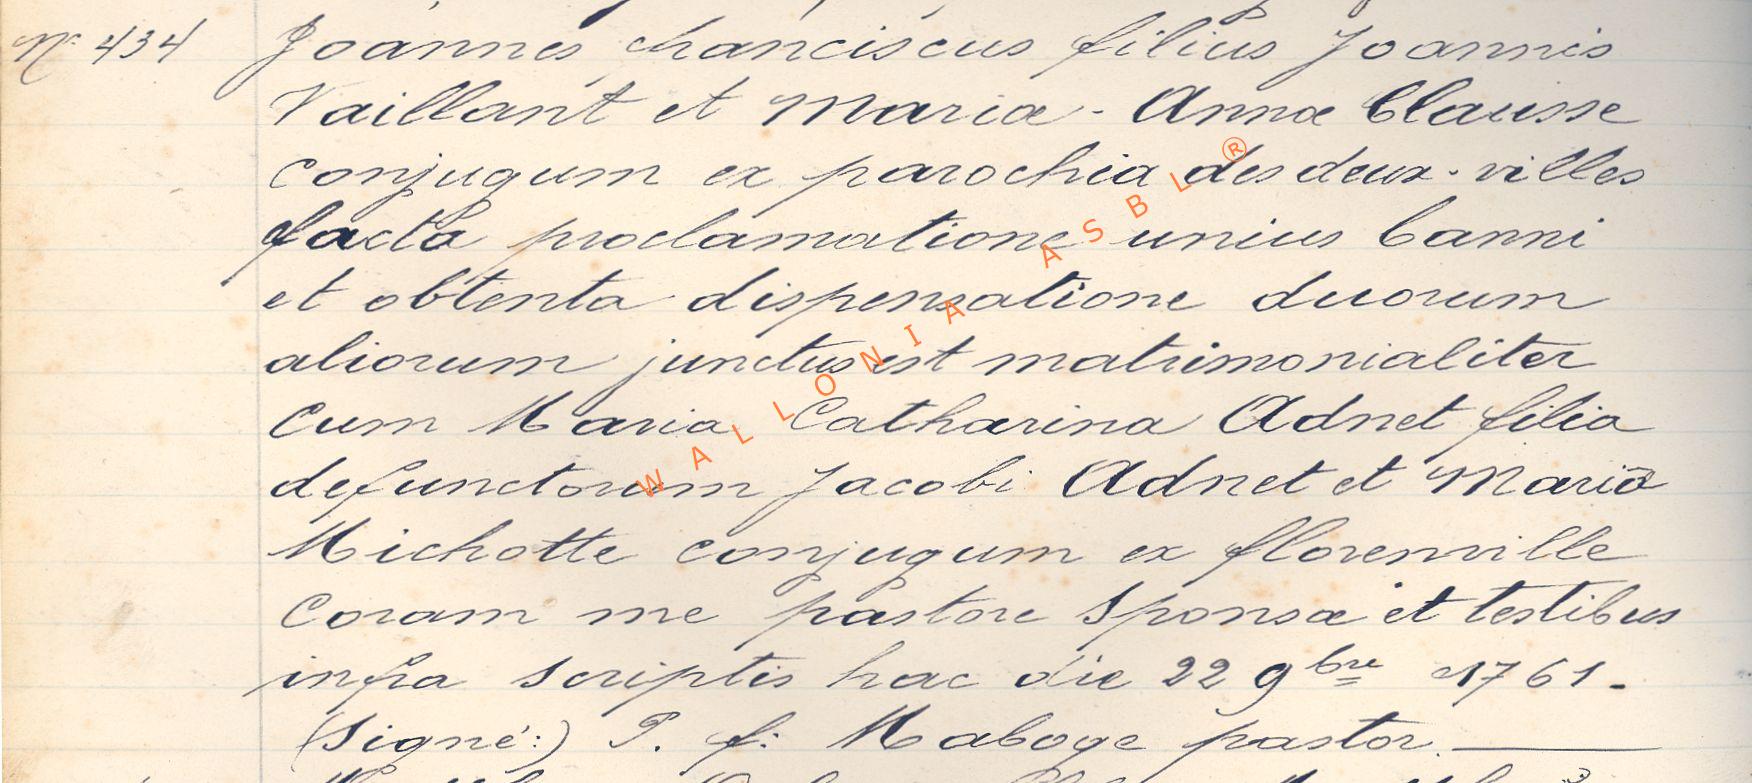 Nº 434 Joannes franciscus filius Joannis
Vaillant et Mariæ - Annæ Clausse
conjugum ex parochia des deux-villes
facta proclamatione unius banni
et obtenta dispensatione duorum
aliorum junctus est matrimonialiter
cum Maria Catharina Adnet filia
defunctorum Jacobi Adnet et Mariæ
Michotte conjugum ex florenville
coram me pastore sponsæ et testibus
infra scriptis hac die 22 9bre 1761.
(Signé:) P. f: Maboge pastor.
WALLONIA ASBL®